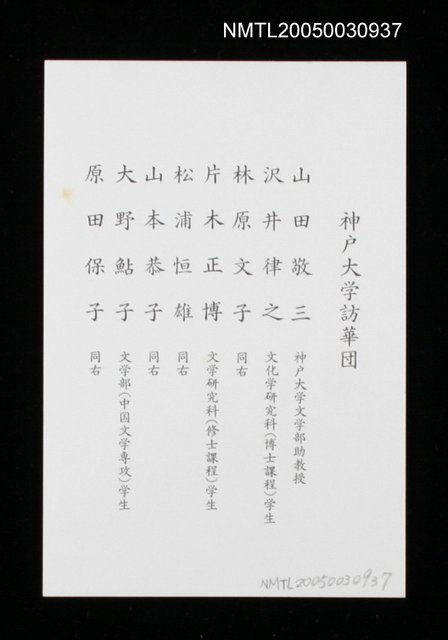 NMTL20050030937
神戸大学訪華団
山田敬三 神戸大学文学部助教授
沢井律之 文化学研究科(博士課程)学生
林原文子 同右
片木正博 文学研究科(修士課程)学生
松浦恒雄 同右
山本恭子 同右
大野鮎子 文学部(中国文学専攻)学生
原田保子 同右
NMTL20050030937